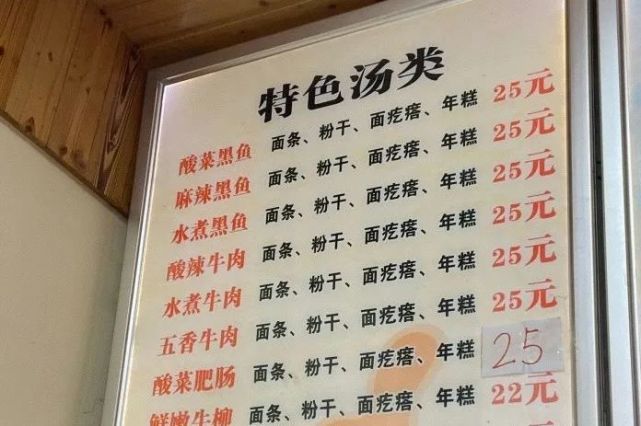 特色汤类
酸菜黑鱼 面条、粉干、面疙瘩、年糕 25元
麻辣黑鱼 面条、粉干、面疙瘩、年糕 25元
水煮黑鱼 面条、粉干、面疙瘩、年糕 25元
酸辣牛肉 面条、粉干、面疙瘩、年糕 25元
水煮牛肉 面条、粉干、面疙瘩、年糕 25元
五香牛肉 面条、粉干、面疙瘩、年糕 25元
酸菜肥肠 面条、粉干、面疙瘩、年糕 25
鲜嫩牛柳 面条、粉干、面疙瘩、年糕 22元